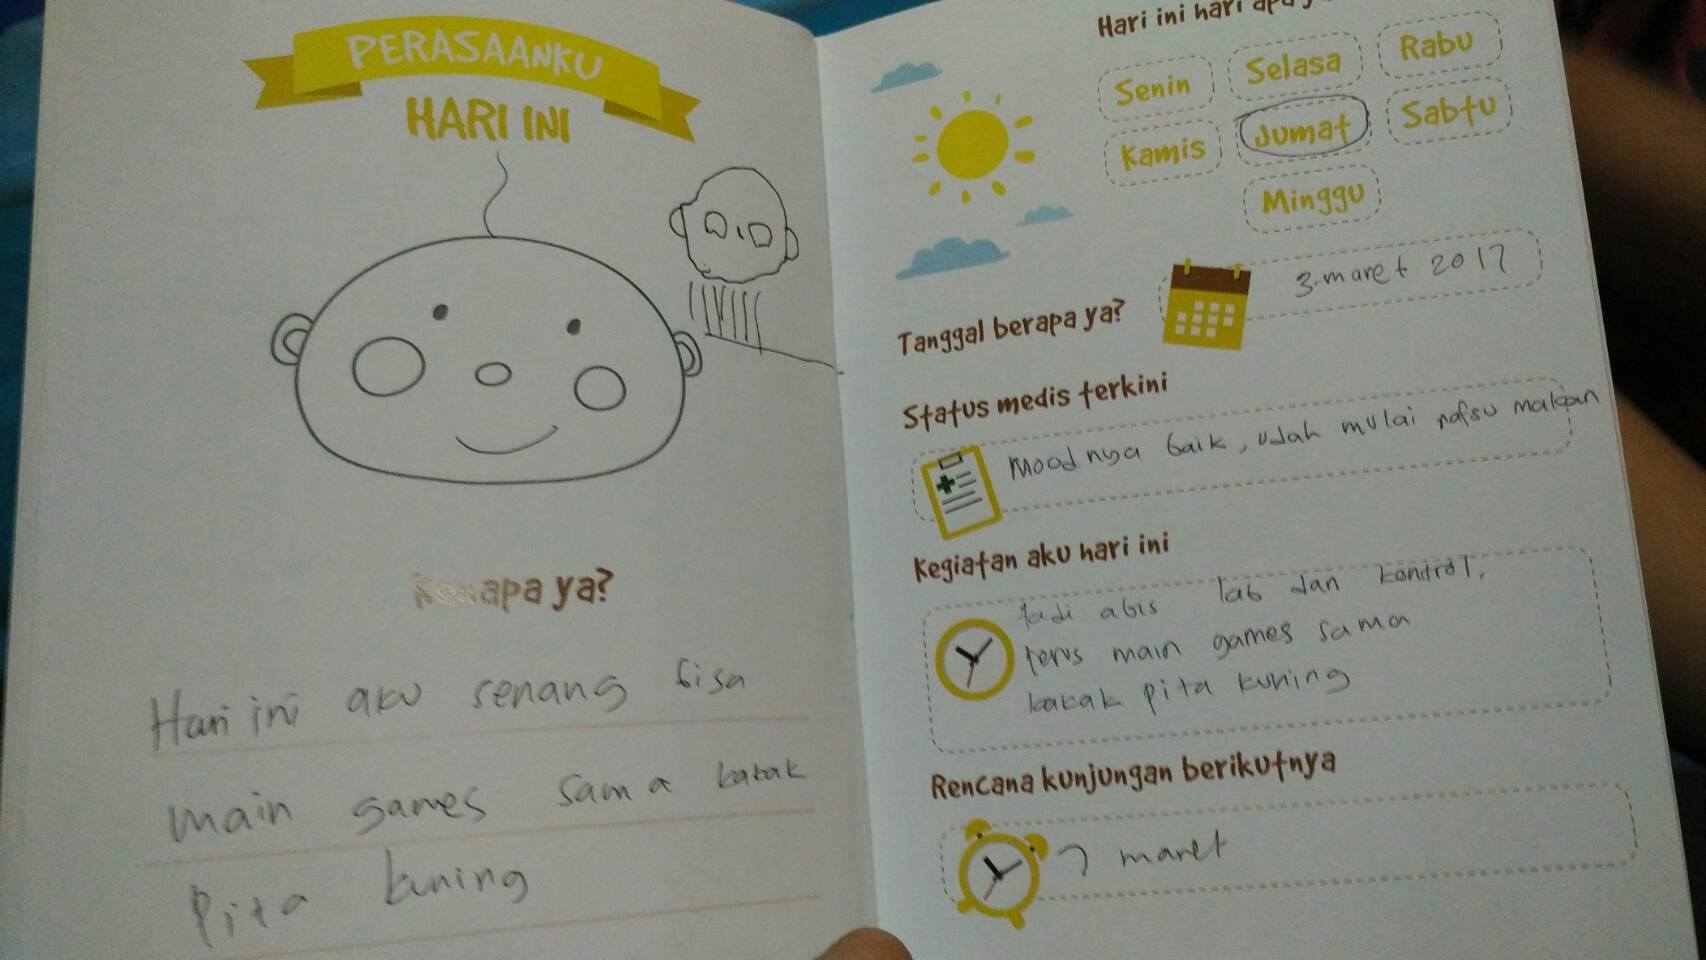 PERASAANKU
HARI INI
Kenapa ya?
Hari ini aku senang bisa
main games sama kakak
Pita kuning
Hari ini hari apa
Senin
Selasa
Rabu
Kamis
Jumat
Sabtu
Minggu
Tanggal berapa ya?
3 maret 2017
Status medis terkini
Moodnya baik, udah mulai nafsu makan
Kegiatan aku hari ini
tadi abis lab dan kontrol,
terus main games sama
kakak pita kuning
Rencana kunjungan berikutnya
7 maret